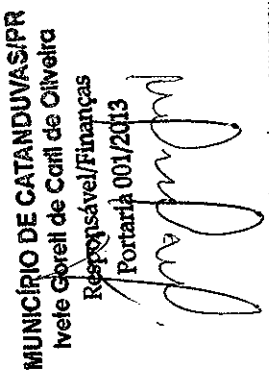 MUNICÍPIO DE CATANDUVAS/PR
Ivete Goreti de Caril de Oliveira
Responsável/Finanças
Portaria 001/2013